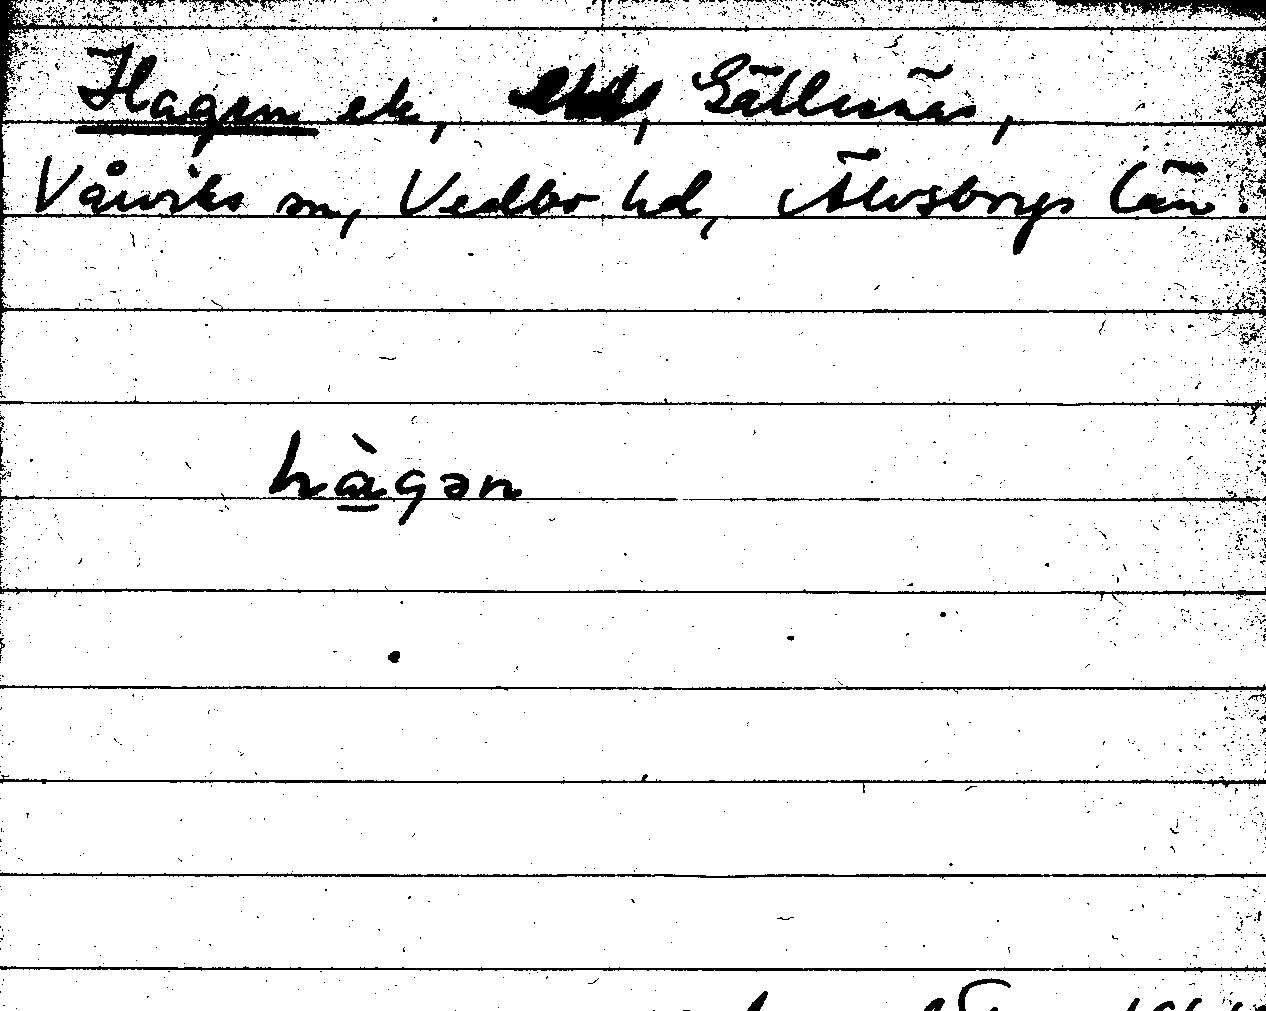 Hagen ek, Gällsnäs,
Vårviks sn, Vedbo hd, Älvsborgs län.
hàgən